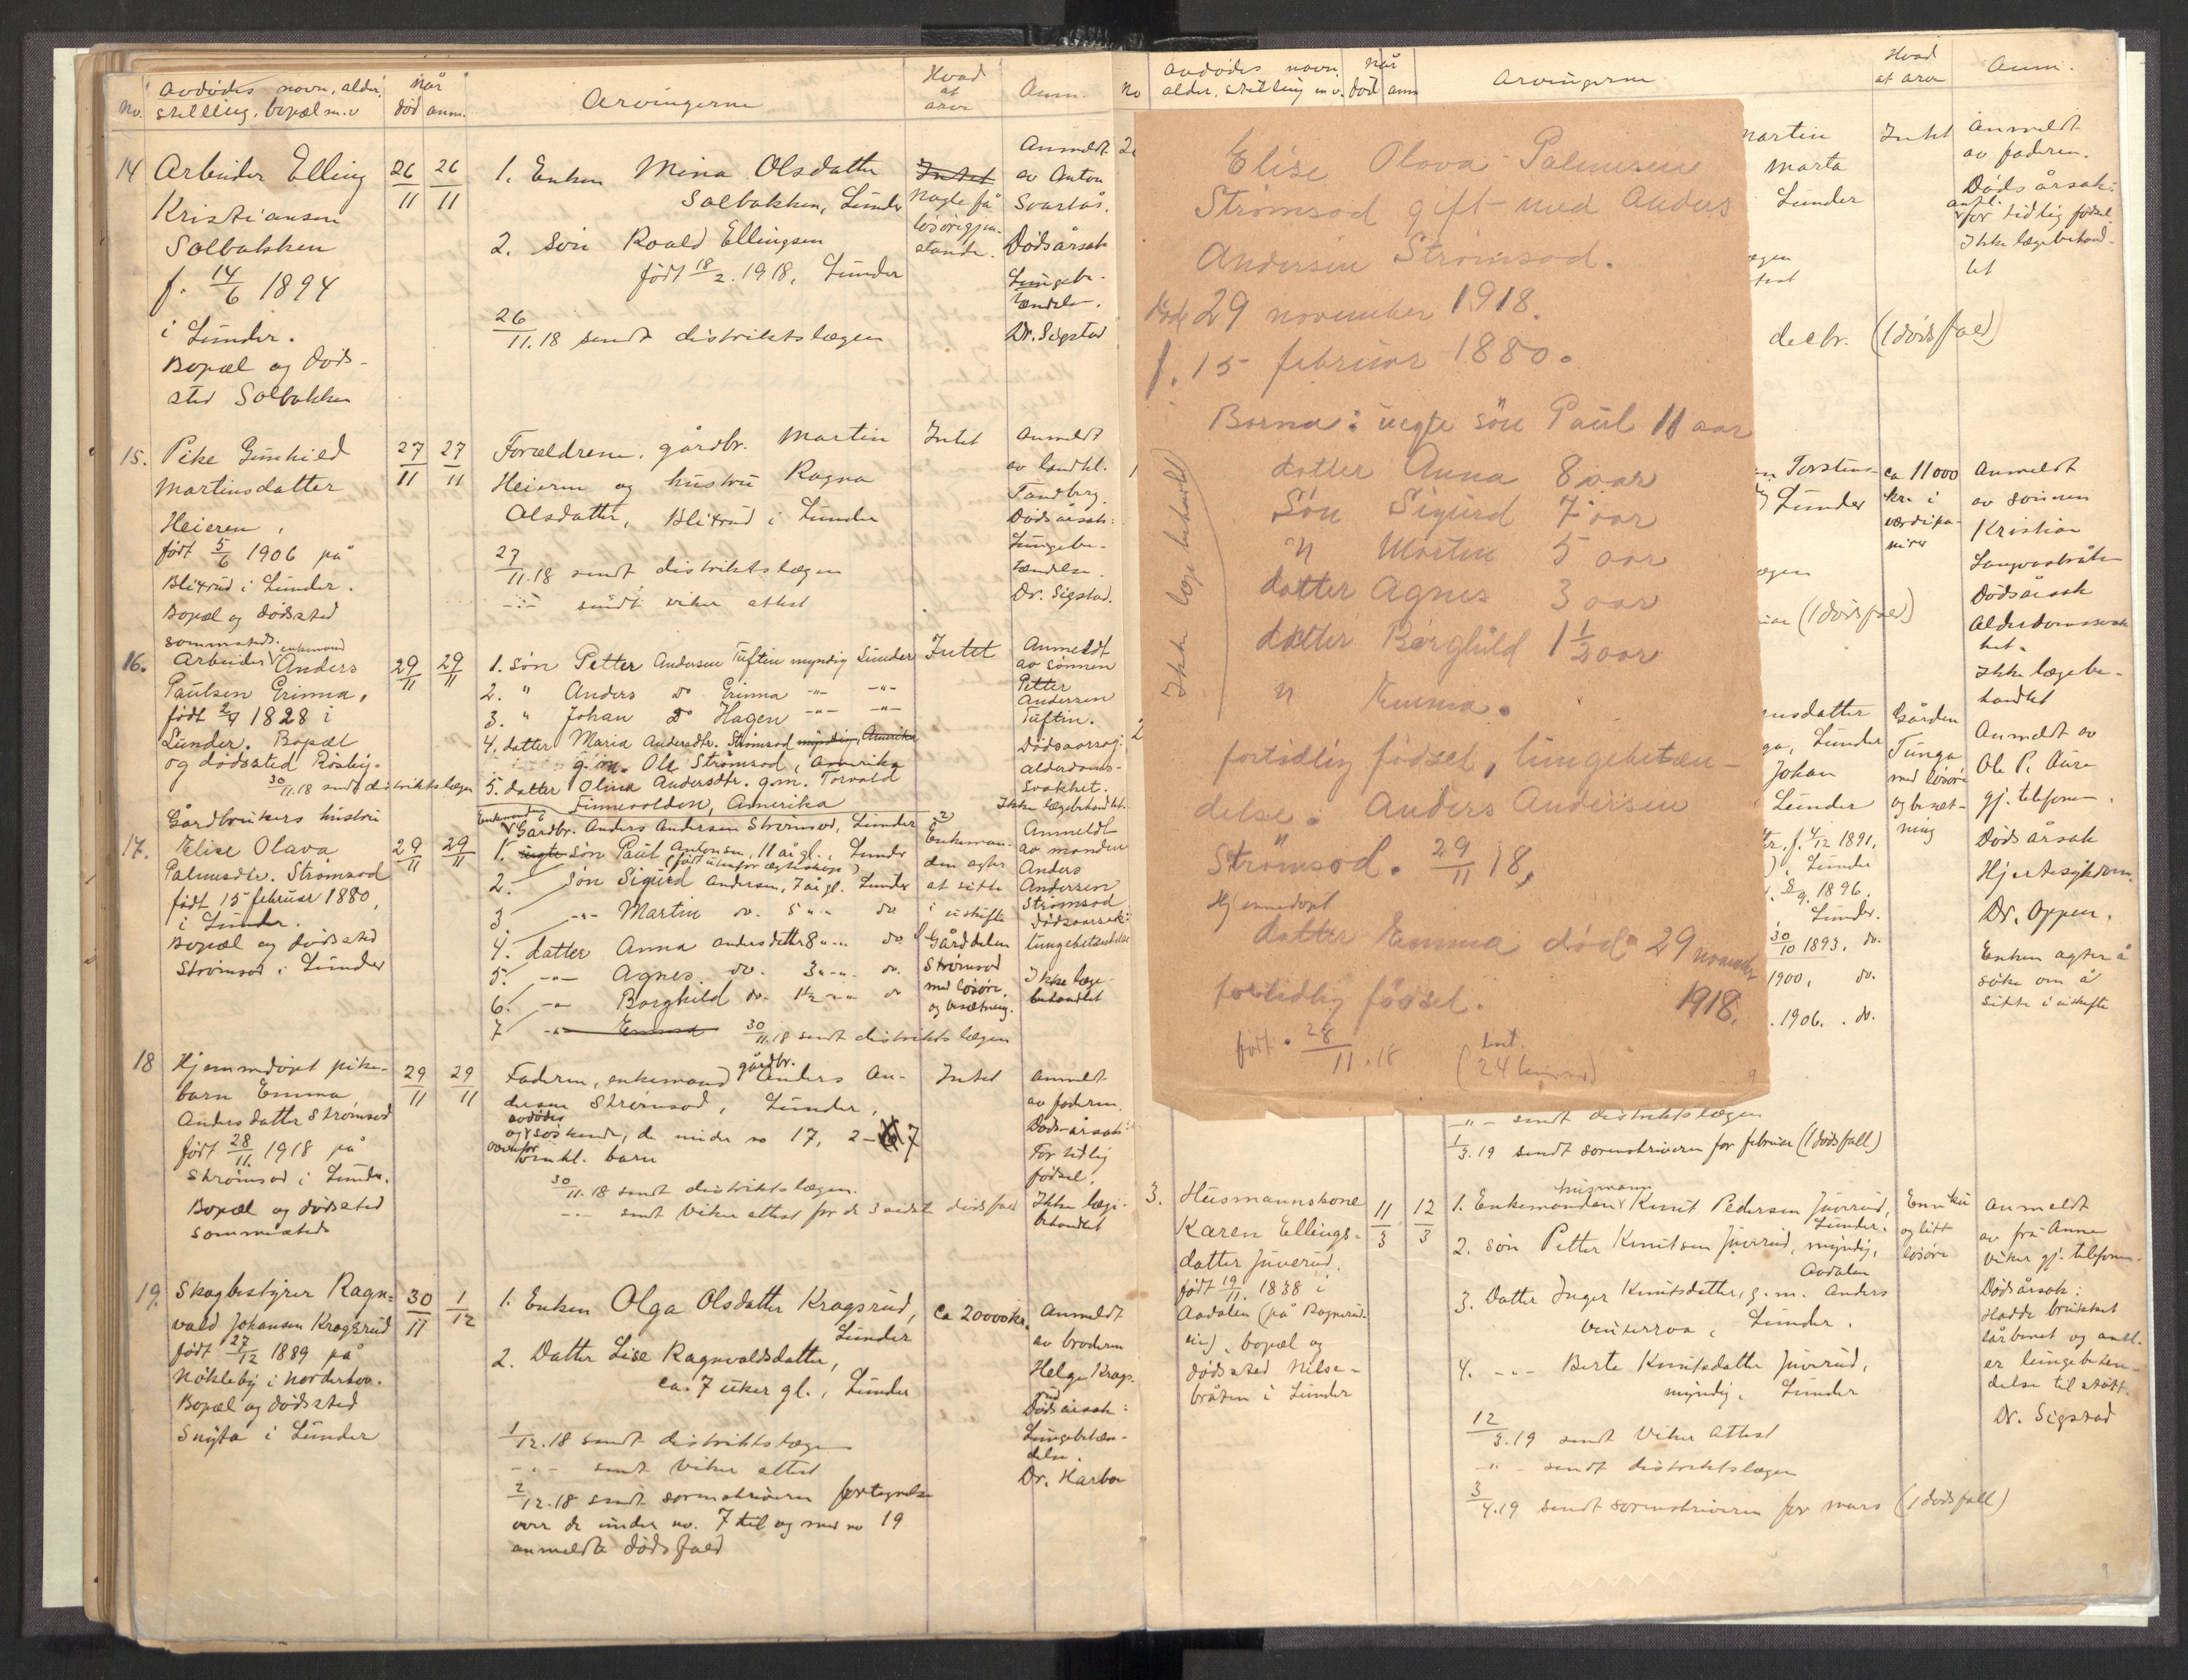 No. Avdødes navn, alder, stilling, bopæl m.v
Når
død anm.
Arvingerne
Hvad
at
arve
Anm.
14 Arbeider Elling
Kristiansen
Solbakken
f. 14/6 1894
i Lunder.
Bopæl og døds-
sted Solbakken
26/11 26/11
1. Enken Mina Olsdatter
Solbakken, Lunder
2. søn Roald Ellingsen
født 18/2. 1918, Lunder
26/11.18 sendt distriktslægen
Intet
Nogle få
løsøregjen-
stande.
Anmeldt
av Anton
Svartås.
Dødsårsak
Lungebe-
tændelse.
Dr. Sigstad
15. Pike Gunhild
Martinsdatter
Heieren,
født 5/6 1906 på
Blixrud i Lunder.
Bopæl og dødssted
sammesteds.
27/11 27/11
Forældrene, gårdbr. Martin
Heieren og hustru Ragna
Olsdatter, Blixrud i Lunder
27/11.18 sendt distriktslægen
-"- sendt viker attest
Intet
Anmeldt
av landhl.
Tandberg.
Dødsårsak:
Lungebe-
tændelse.
Dr. Sigstad.
16. Arbeider enkemand Anders
Paulsen Grinna,
født 2/9 1828 i
Lunder. Bopæl
og dødssted Rösby.
30/11.18 sendt distriktslægen
29/11 29/11
1. søn Petter Andersen Tuftin myndig Lunder
2. " Anders do Grinna -"- -"-
3. " Johan do Hagen -"- -"-
4. datter Maria Andersdtr. Strømsod myndig, Amerika
g.m. Ole Strømsod, Amerika
5. datter Olina Andersdtr. g.m. Torvald
Finnevolden, Amerika
Intet
Anmeldt
av sønnen
Petter
Andersen
Tuftin.
Dødsaarsag:
alderdoms-
svakhet.
Ikke lægebehandlet.
Gårdbrukers hustru
17. Elise Olava
Palmesdtr. Strømsod
født 15 februar 1880,
i Lunder.
Bopæl og dødssted
Strømsod i Lunder
29/11 29/11
Gårdbr. Anders Andersen Strømsod, Lunder
1. uegte søn Paul Antonsen, 11 år gl., Lunder
(født utenfor ægteskap)
2. søn Sigurd Andersen, 7 år gl. Lunder
3 -"- Martin do. 5 "-" do
4. datter Anna Andersdatter 8 "-" do
5. -"- Agnes do. 3 "-" do.
6. -"- Borghild do. 1½ "-" do
7 -"- Emma 30/11.18 sendt distriktslægen
Enkeman-
den agter
at sitte
i uskifte
Gårddelen
Strømsod
med løsøre
og besætning.
Anmeldt
av manden
Anders
Andersen
Strømsod
Dødsaarsak:
lungebetændelse
Ikke læge-
behandlet
18 Hjemmedøpt pike-
barn Emma
Andersdatter Strømsod
født 28/11. 1918 på
Strømsod i Lunder.
Bopæl og dødssted
sammesteds
29/11 29/11
Faderen, enkemand gårdbr. Anders An-
dersen Strømsod, Lunder,
og avdødes søskende, de under no 17, 2-7
ovenfor barn
30/11.18 sendt distriktslægen.
-"- sendt viker attest for de 3 sidste dødsfald
Intet
Anmeldt
av faderen.
Dødsårsak:
For tidlig
fødsel.
Ikke læge-
behandlet
19. Skogbestyrer Ragn-
vald Johansen Kragsrud
født 27/12 1889 på
Nökleby i Norderhov.
Bopæl og dødssted
Snyta i Lunder
30/11 1/12
1. Enken Olga Olsdatter Kragsrud,
Lunder
2. Datter Lise Ragnvaldsdatter,
ca. 7 uker gl., Lunder
1/12.18 sendt distriktslægen
-"- sendt viker attest
2/12.18 sendt sorenskriveren fortegnelse
over de under no. 7 til og med no 19
anmeldte dødsfald
ca 20000 kr.
Anmeldt
av broderen
Helge Krags-
rud
Dødsårsak:
Lungebetæn-
delse.
Dr. Harbo
No Avdødes navn,
alder, stilling m.v.
Når
død anm
Arvingerne
Hvad
at arve
Anm.
Elise Olava Palmesen
Strømsod gift med Anders
Andersen Strømsod.
död 29 november 1918.
f. 15 februar 1880.
Borna: uegte sön Paul 11 aar
datter Anna 8 aar
Søn Sigurd 7 aar
" Martin 5 aar
datter Agnes 3 aar
datter Borghild 1½ aar
" Emma.
Ikke læge behandlet
fortidlig fødsel, lungebetæn-
delse. Anders Andersen
Strømsod. 29/11 18,
Hjemmedøpt
datter Emma død 29 november
fortidlig fødsel. 1918.
født. 28/11.18
Martin
Marta
Lunder
decbr. (1 dødsfal)
Intet
Anmeldt
av faderen.
Dødsårsak:
antl.
for tidlig fødsel
Ikke lægebehand-
let
Torstens-
Lunder
(1 dødsfal)
ca 11000
kr. i
værdipa-
pirer
Anmeldt
av sønnen
Kristian
Dødsårsak
Alderdomssvak-
het.
Ikke lægebe-
handlet
Lunder
Johan
Lunder
f. 4/12 1891,
Lunder
1896.
Lunder.
30/10 1893, do.
1900, do.
1906. do.
Gården
Tunga
med løsøre
og besæt-
ning
Anmeldt av
Ole P. Aure
gj. telefon.
Dødsårsak
Hjertesykdom.
Dr. Oppen.
Enken agter å
søke om å
sitte i uskifte
-"- sendt distriktslægen
1/3.19 sendt sorenskriveren for februar (1 dødsfall)
3. Husmannskone
Karen Ellings-
datter Juverud.
født 19/11. 1838 i
Aadalen (på Ragnerud-
eie), bopæl og
dødssted Nilse-
bråten i Lunder
11/3 12/3
1. Enkemanden husmann Knut Pedersen Juverud,
Lunder.
2. søn Petter Knutsen Juverud, myndig,
Aadalen
3. Datter Inger Knutsdatter, g.m. Anders
Lunder.
4. -"- Berte Knutsdatter Juverud,
myndig. Lunder
12/3.19 sendt viker attest
-"- sendt distriktslægen
3/4.19 sendt sorenskriveren for mars (1 dødsfall)
Enn ku
og litt
løsøre
Anmeldt
av fra Anne
Viker gj. telefon.
Dødsårsak:
Hadde brukket
lårbenet og antl.
er lungebeten-
delse til støtt.
Dr. Sigstad